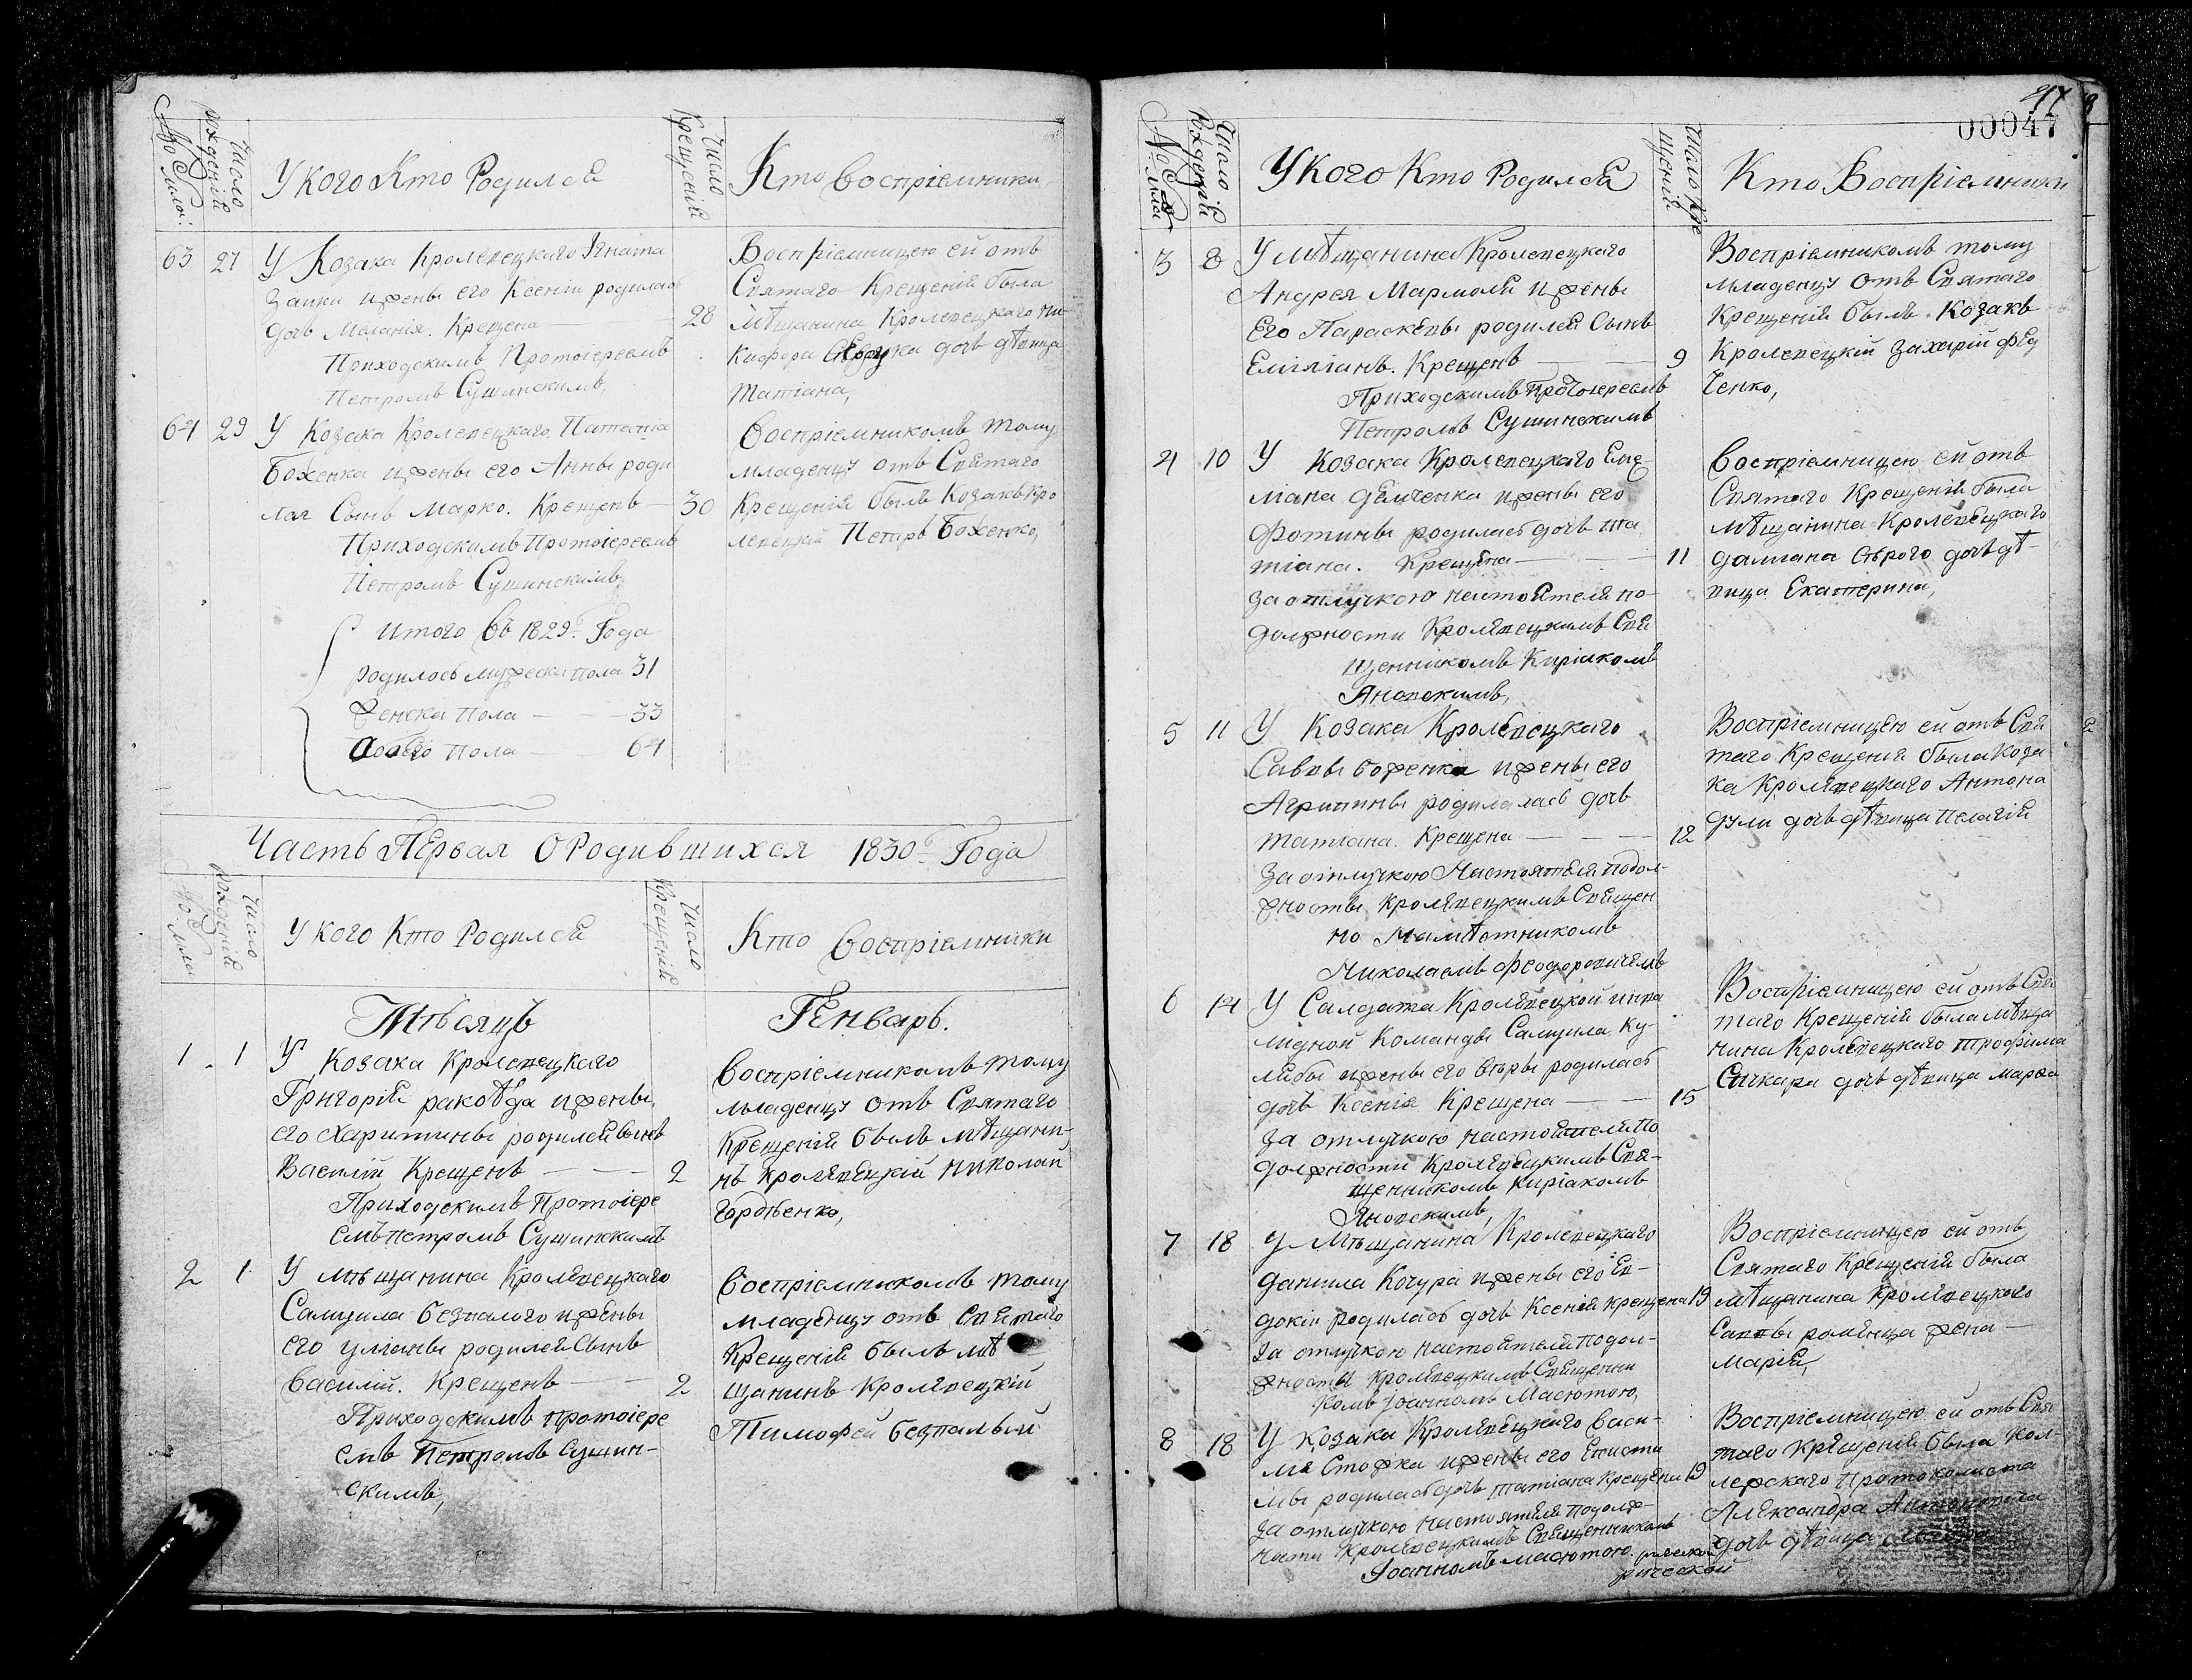 No Číсла:
Число рожденій
У кого Кто Родился
Число Крещеній
Кто воспріемники
63 27 У Козака Кролевецкого Игната
Заики и жены его Ксеніи родилась
дочь Меланія. Крещена — 28
Приходскимъ Протоіереемъ
Петромъ Сушинскимъ,
Воспріемницею ей отъ
Святаго Крещенія была
мѣщанина Кролевецкаго Ни-
кифора дочь дѣвица
Татіана,
64 29 У Козака Кролевецкаго Патапіа
Боженка и жены его Анны роди
лся Сынъ Марко. Крещенъ — 30
Приходскимъ Протоіереемъ
Петромъ Сушинскимъ,
Воспріемникомъ тому
младенцу отъ Святаго
Крещенія былъ Козакъ Кро
левецкій Петръ Боженко,
Итого въ 1829ъ Года
родилось мужеска пола 31
Женска Пола — 33
Аобоего пола — 64
Часть Первая О Родившихся 1830ъ Года
No Числа
Число рожденій
У кого Кто Родился
Число Крещеній
Кто воспріемники
Мѣсяцъ Генварь.
1 1 У Козака Кролевецкаго
Григорія ракоѣда и жены
его Харитины родился сынъ
Василій Крещенъ — 2
Приходскимъ Протоіере
емъ петромъ Сушинскимъ
Воспріемникомъ тому
младенцу отъ Святаго
Крещенія былъ мѣщани-
нъ Кролевецкій Николай
Горбенко,
2 1 У мѣщанина Кролевецкаго
Самуила безпалого и жены
его уліаны родился Сынъ
василій. Крещенъ — 2
Приходскимъ протоіере
емъ Петромъ Сушин-
скимъ,
Воспріемникомъ тому
младенцу отъ Святаго
Крещенія былъ мѣ
щанинъ Кролевецкій
Тимофей безпалый
47
00047
No Числа
Число Рожденій
У Кого Кто Родился
Число Кре щеній
Кто Воспріемники
3 8 У мѣщанина Кролевецкаго
Андрея Мармоли и жены
Его Параскевы родился Сынъ
Емиліанъ. Крещенъ — 9
Приходскимъ протоіереемъ
Петромъ Сушинскимъ
Воспріемникомъ тому
младенцу отъ Святаго
Крещенія былъ Козакъ
Кролевецкій Захарій Фед
Ченко,
4 10 У Козака Кролевецкаго Еме-
ліана демченка и жены его
Фотины родилась дочь та
тіана. Крещена — 11
за отлучкою настоятеля по-
должности Кролевецкимъ Свя
щенникомъ Киріакомъ
Яновскимъ,
Воспріемницею ей отъ
Святаго Крещенія была
мѣщанина Кролевецкаго
даміана Сѣрого дочь дѣ-
вица Екатерина,
5 11 У Козака Кролевецкаго
Саввы боженка и жены его
Агрипины родилалась дочь
татіана. Крещена — 12
За отлучкою Настоятеля подол-
жности Кролевецкимъ Священ
но Намѣстникомъ
Николаемъ Феодоровичемъ
Воспріемницею ей отъ Свя
таго Крещенія была Коза
ка Кролевецкаго Антона
дули дочь дѣвица Пелагія
6 14 У Салдата Кролевецкой инва
лидной Команды Самуила Ку-
либы и жены его родилась
дочь Ксенія Крещена — 15
за отлучкою настоятеля по
должности Кролевецкимъ Свя-
щенникомъ Киріакомъ
Яновскимъ,
Воспріемницею ей отъ Свя
таго Крещенія была мѣща
нина Кролевецкаго трофима
Сичкаря дочь дѣвица марфа
7 18 У Мѣщанина Кролевецкаго
даниила Кочура и жены его Ев-
докіи родилась дочь Ксенія крещена 19
За отлучкою настоятеля подол-
жносты кролевецкимъ Священни
комъ Іоанномъ Масютою,
Воспріемницею ей отъ
Святаго Крещенія была
мѣщанина Кролевецкого
Саввы романца жена —
марія,
8 18 У козака Кролевецкого васи-
ля Стожка и жены его Евисти
мы родилась дочь татіана Крещена 19
За отлучкою настоятеля подолж-
ности Кролевецкимъ Священникомъ
Іоанномъ масютою.
Воспріемницею ей отъ Свя
таго крещенія была кол-
лежскаго Протоколиста
Александра
дочь дѣвица